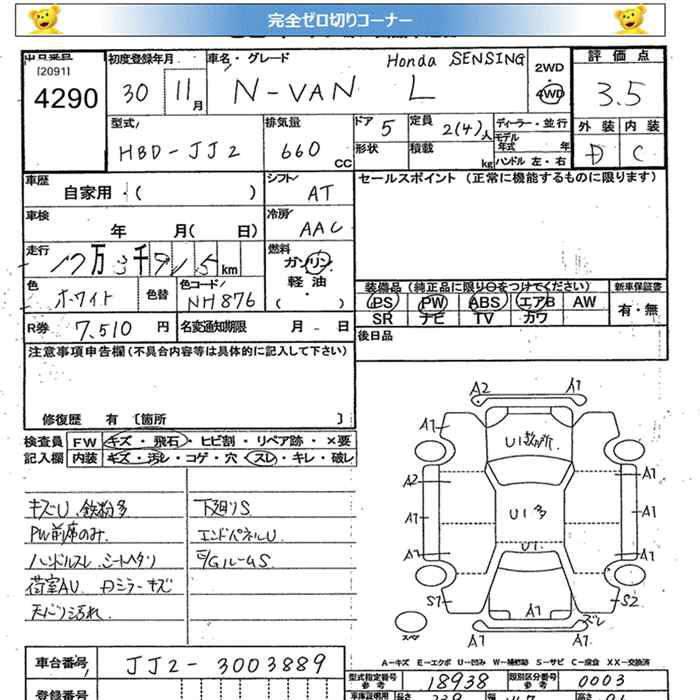 完全ゼロ切りコーナー
出品番号 初度登録年月 車名・グレード Honda SENSING 2WD 評価点
[2091]
4290 30 11月 N-VAN L 4WD 3.5
外装 内装
D C
型式 排気量 ドア 5 定員 2(4)人 ディーラー・並行
モデル年式 年
HBD-JJ2 660 CC 形状 積載 kg ハンドル 左・右
車歴 自家用・( ) シフト AT セールスポイント (正常に機能するものに限ります)
車検 年 月( 日) 冷房 AAC
走行 17万3千915km 燃料 ガソリン
軽油
( ・ )
色 ホワイト 色替 色コード NH876
装備品(純正品に限り○をつけてください) 新車保証書
PS PW ABS エアB AW 有・無
SR ナビ TV カワ
R券 7,510 円 名変通知期限 月 日 後日品
注意事項申告欄(不具合内容等は具体的に記入して下さい)
修復歴 有 〔箇所 〕
検査員 FW キズ・飛石・ヒビ割・リペア跡・×要
記入欄 内装 キズ・汚レ・コゲ・穴・スレ・キレ・破レ
キズU、鉄粉多 下廻りS
PW前席のみ エンドパネルU
ハンドルスレ シートヘタリ E/GルームS
荷室AU Dミラーキズ
天バリ汚れ
A2 A1
A1 A1
A2 A1
A1 A1
A1 A1
S1 S2
U1 U1多
U1
A1
A1 A1
スペア
A-キズ E-エクボ U-凹み W-補修跡 S-サビ C-腐食 XX-交換済
車台番号 JJ2-3003889 型式指定番号 参考 18938 類別区分番号 参考 0003
登録番号 車庫証明用 長さ 幅 高さ